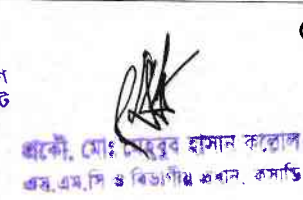 প্রকৌ. মোঃ মেহবুব হাসান কল্লোল
এস.এম.সি ও বিভাগীয় প্রধান,